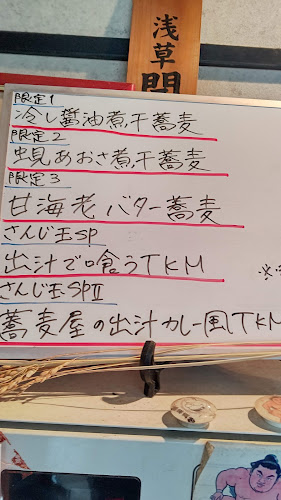 浅草開
限定1
冷し醤油煮干蕎麦
限定2
蜆あおさ煮干蕎麦
限定3
甘海老バター蕎麦
さんじ玉SP
出汁で喰うTKM
さんじ玉SPII
蕎麦屋の出汁カレー風TKM